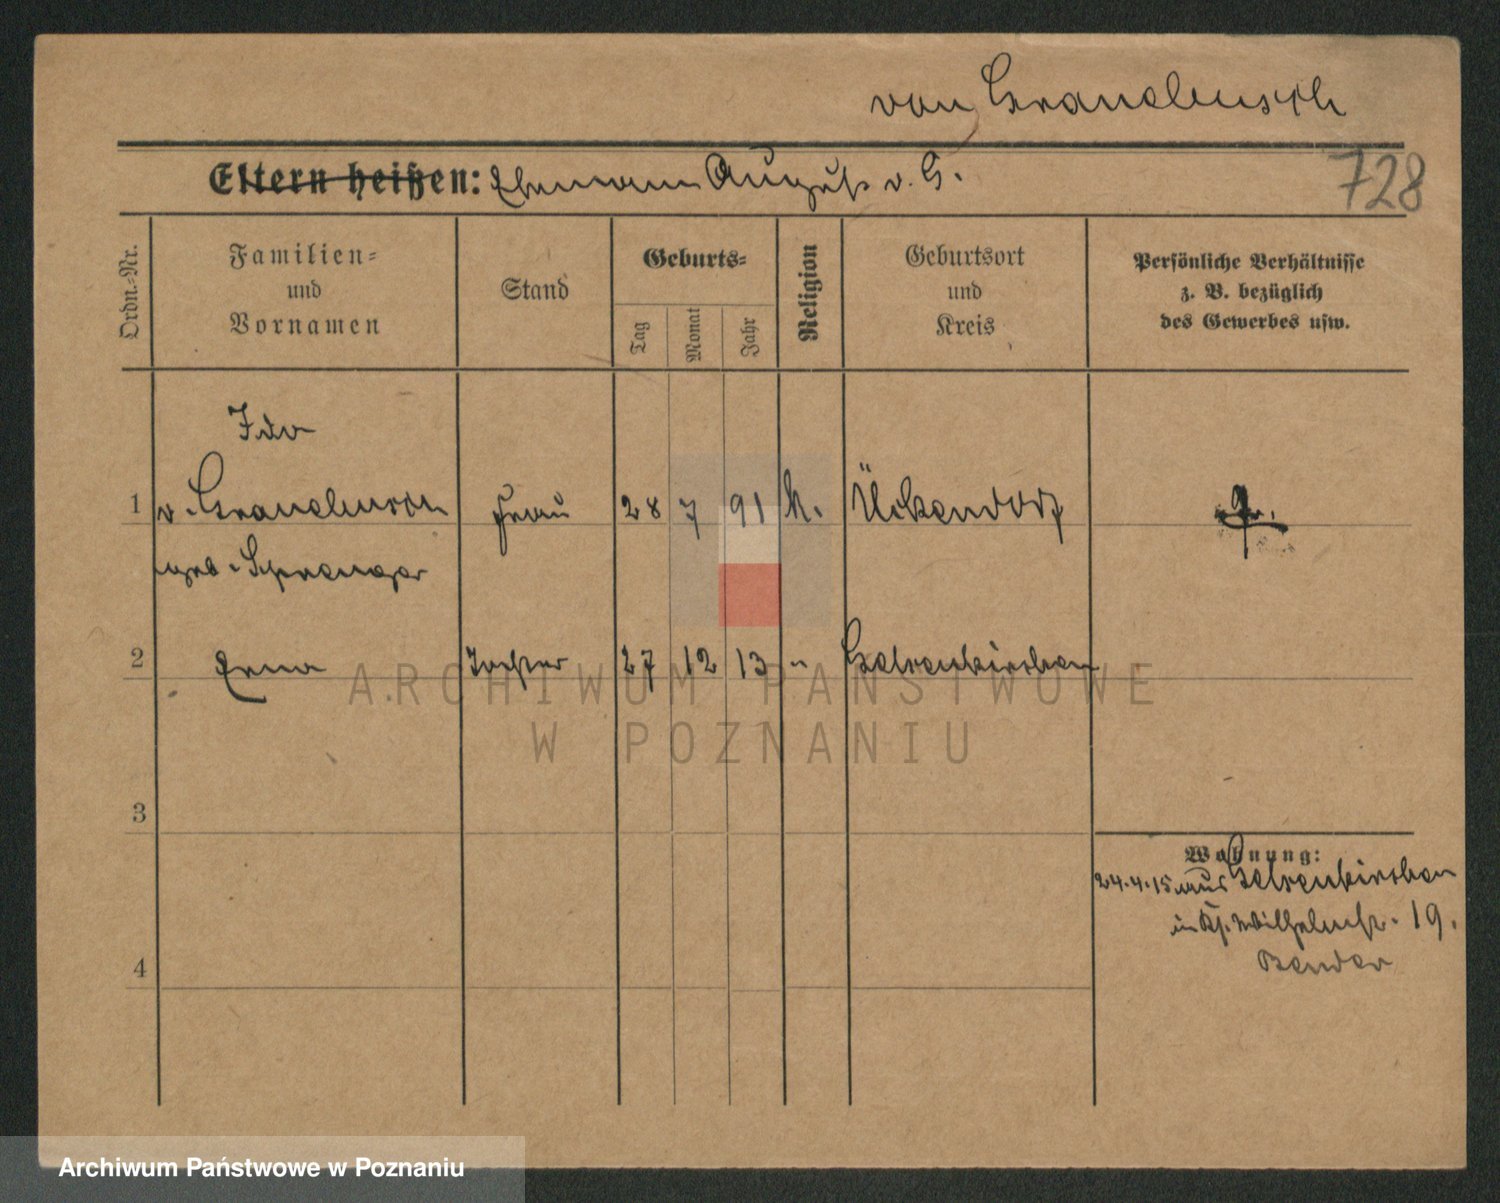 von Grandbusch
728
Eltern heißen: Ehemann August v. G.
Ordn.-Nr.
Familien-
und
Vornamen
Stand
Geburts-
Tag
Monat
Jahr
Religion
Geburtsort
und
Kreis
Persönliche Verhältnisse
z. B. bezüglich
des Gewerbes usw.
Ida
1 v. Frau 28 7 91 k. Ückendorf
geb. Sprenger
2 Erna Tochter 27 12 13 " Gelsenkirchen
3
4
Wohnung:
24.4.15 aus Gelsenkirchen
in Wilhelmstr. 19.
Bender
ARCHIWUM PAŃSTWOWE
W POZNANIU
Archiwum Państwowe w Poznaniu